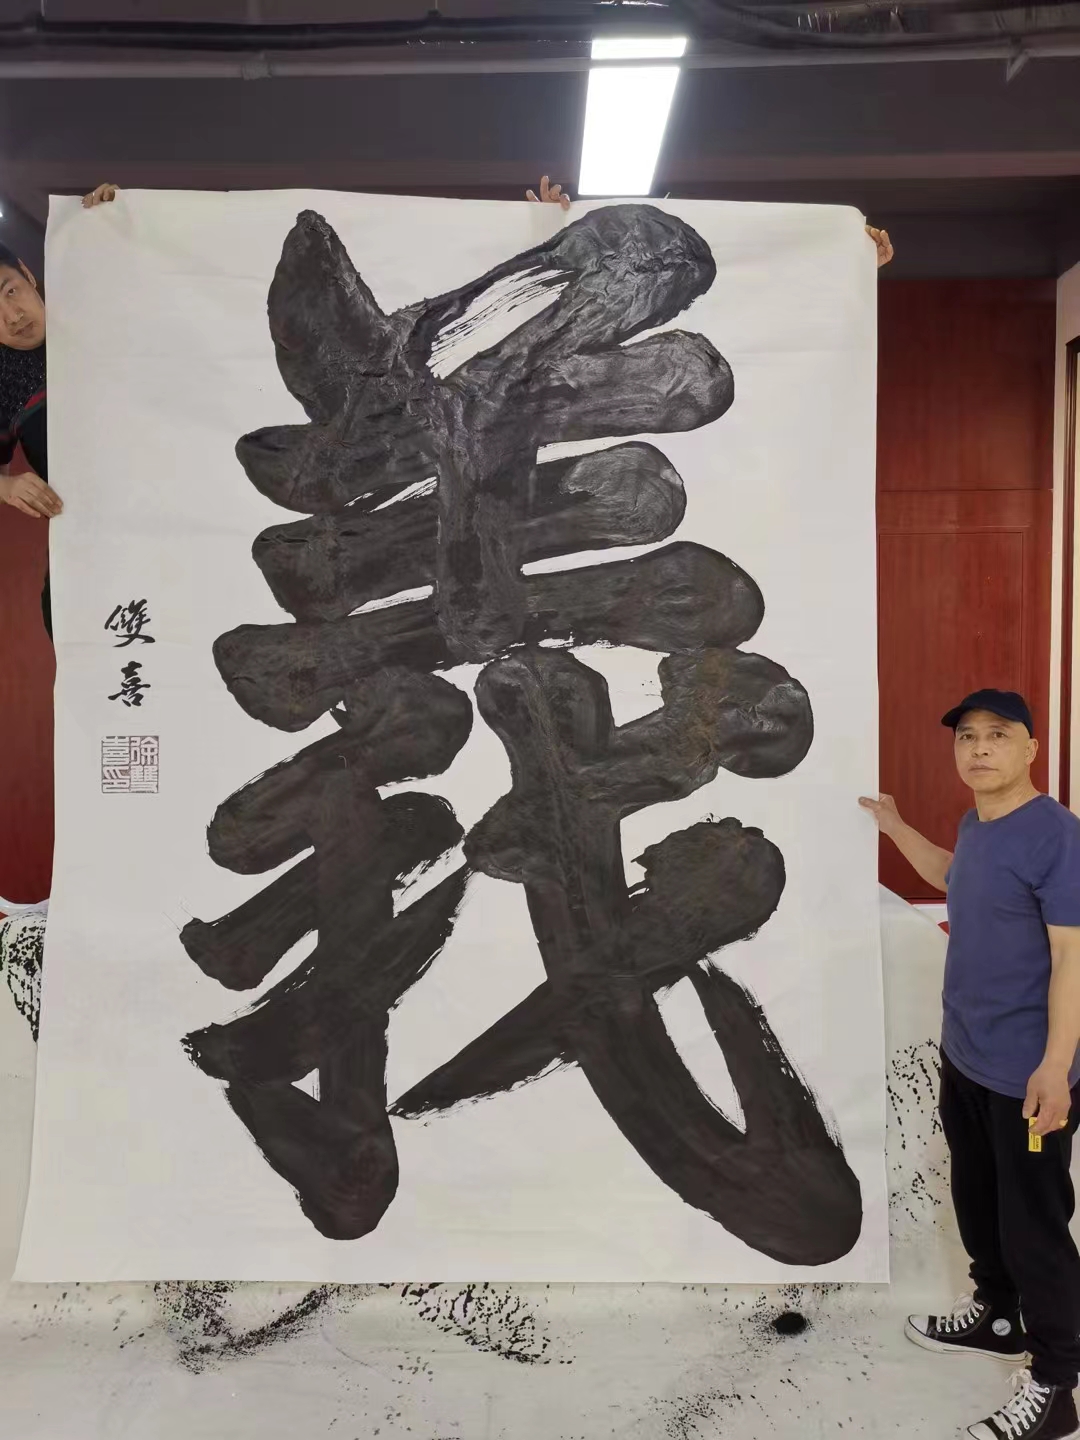 義
雙喜
徐雙喜印